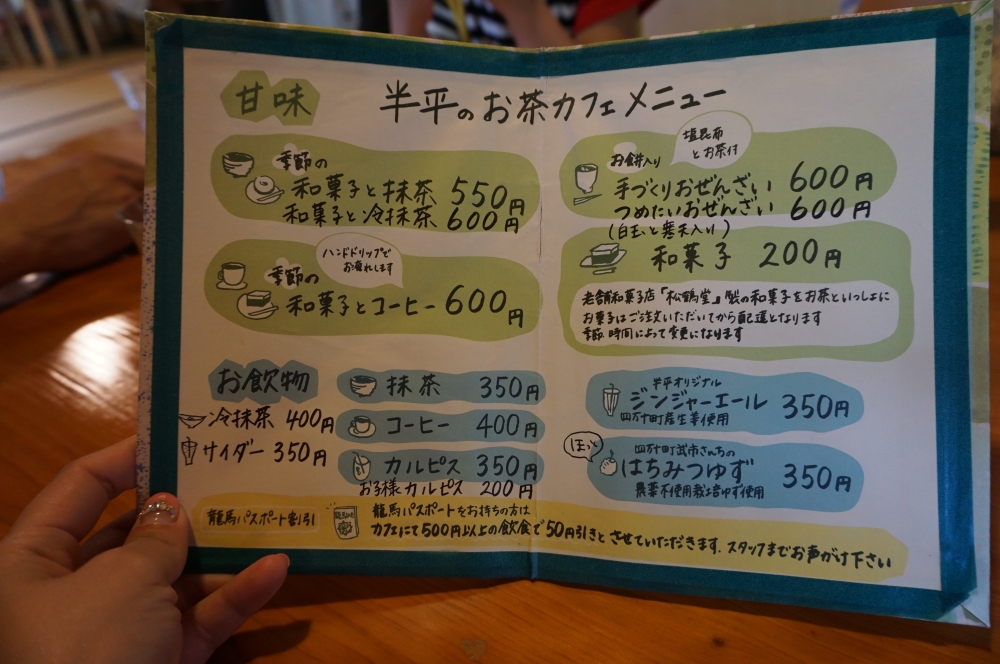 半平のお茶カフェメニュー
甘味
季節の
和菓子と抹茶 550円
和菓子と冷抹茶 600円
ハンドドリップで
お淹れします
季節の
和菓子とコーヒー 600円
塩昆布
とお茶付
お餅入り
手づくりおぜんざい 600円
つめたいおぜんざい 600円
(白玉と寒天入り)
和菓子 200円
老舗和菓子店「松鶴堂」製の和菓子をお茶といっしょに
お菓子はご注文いただいてから配達となります
季節、時間によって変更になります
お飲物
冷抹茶 400円
サイダー 350円
抹茶 350円
コーヒー 400円
カルピス 350円
お子様カルピス 200円
半平オリジナル
ジンジャーエール 350円
四万十町産生姜使用
ほっと
四万十町武市さんちの
はちみつゆず 350円
農薬不使用栽培ゆず使用
龍馬パスポート割引
龍馬パスポートをお持ちの方は
カフェにて500円以上の飲食で50円引きとさせていただきます。スタッフまでお声がけ下さい